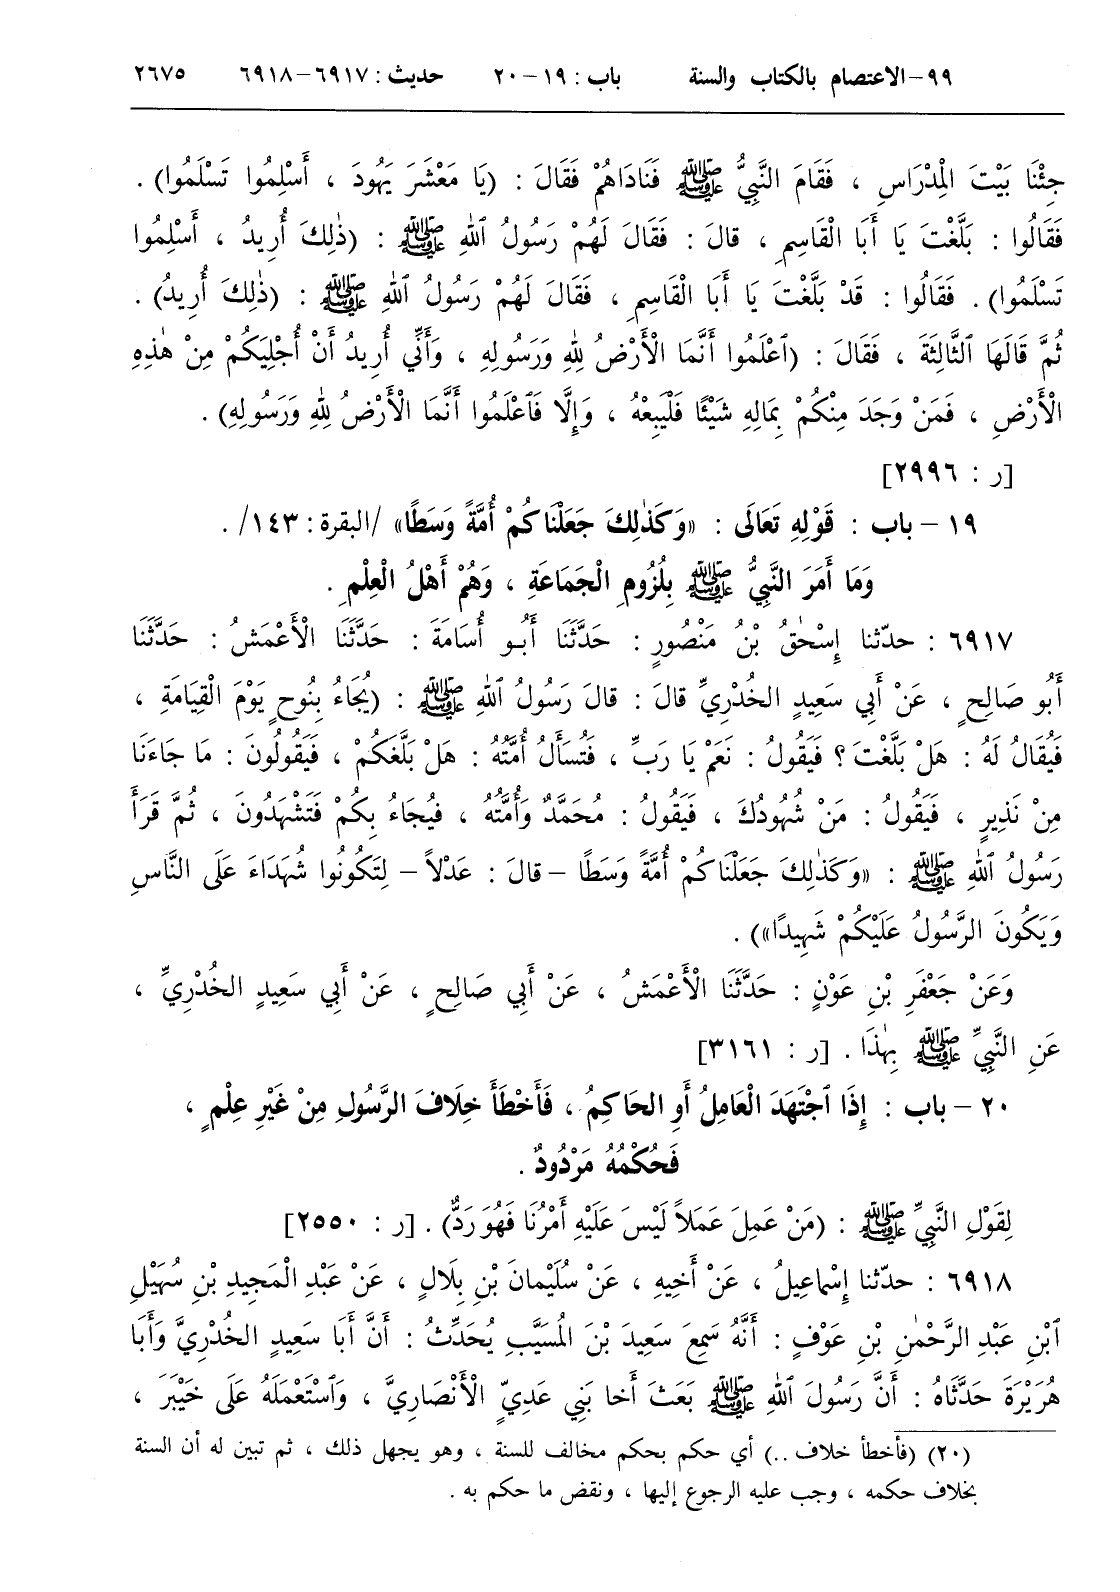 ٩٩-الاعتصام بالكتاب والسنة باب : ١٩-٢٠ حديث : ٦٩١٧-٦٩١٨ ٢٦٧٥
جِئْنَا بَيْتَ الْمِدْرَاسِ ، فَقَامَ النَّبِيُّ ﷺ فَنَادَاهُمْ فَقَالَ : (يَا مَعْشَرَ يَهُودَ ، أَسْلِمُوا تَسْلَمُوا) .
فَقَالُوا : بَلَّغْتَ يَا أَبَا الْقَاسِمِ ، قالَ : فَقَالَ لَهُمْ رَسُولُ ٱللهِ ﷺ : (ذٰلِكَ أُرِيدُ ، أَسْلِمُوا
تَسْلَمُوا) . فَقَالُوا : قَدْ بَلَّغْتَ يَا أَبَا الْقَاسِمِ ، فَقَالَ لَهُمْ رَسُولُ ٱللهِ ﷺ : (ذٰلِكَ أُرِيدُ) .
ثُمَّ قَالَهَا ٱلثَّالِثَةَ ، فَقَالَ : (ٱعْلَمُوا أَنَّمَا الْأَرْضُ لِلهِ وَرَسُولِهِ ، وَأَنِّي أُرِيدُ أَنْ أُجْلِيَكُمْ مِنْ هٰذِهِ
الْأَرْضِ ، فَمَنْ وَجَدَ مِنْكُمْ بِمَالِهِ شَيْئًا فَلْيَبِعْهُ ، وَإِلَّا فَٱعْلَمُوا أَنَّمَا الْأَرْضُ لِلهِ وَرَسُولِهِ) .
[ر : ٢٩٩٦]
١٩ - باب : قَوْلِهِ تَعَالَى : «وَكَذٰلِكَ جَعَلْنَاكُمْ أُمَّةً وَسَطًا» /البقرة : ١٤٣/ .
وَمَا أَمَرَ النَّبِيُّ ﷺ بِلُزُومِ الْجَمَاعَةِ ، وَهُمْ أَهْلُ الْعِلْمِ .
٦٩١٧ : حدّثنا إِسْحٰقُ بْنُ مَنْصُورٍ : حَدَّثَنَا أَبُو أُسَامَةَ : حَدَّثَنَا الْأَعْمَشُ : حَدَّثَنَا
أَبُو صَالِحٍ ، عَنْ أَبِي سَعِيدٍ الخُدْرِيِّ قالَ : قالَ رَسُولُ ٱللهِ ﷺ : (يُجَاءُ بِنُوحٍ يَوْمَ الْقِيَامَةِ ،
فَيُقَالُ لَهُ : هَلْ بَلَّغْتَ ؟ فَيَقُولُ : نَعَمْ يَا رَبِّ ، فَتُسْأَلُ أُمَّتُهُ : هَلْ بَلَّغَكُمْ ، فَيَقُولُونَ : مَا جَاءَنَا
مِنْ نَذِيرٍ ، فَيَقُولُ : مَنْ شُهُودُكَ ، فَيَقُولُ : مُحَمَّدٌ وَأُمَّتُهُ ، فَيُجَاءُ بِكُمْ فَتَشْهَدُونَ ، ثُمَّ قَرَأَ
رَسُولُ ٱللهِ ﷺ : «وَكَذٰلِكَ جَعَلْنَاكُمْ أُمَّةً وَسَطًا - قالَ : عَدْلاً - لِتَكُونُوا شُهَدَاءَ عَلَى النَّاسِ
وَيَكُونَ الرَّسُولُ عَلَيْكُمْ شَهِيدًا») .
وَعَنْ جَعْفَرِ بْنِ عَوْنٍ : حَدَّثَنَا الْأَعْمَشُ ، عَنْ أَبِي صَالِحٍ ، عَنْ أَبِي سَعِيدٍ الخُدْرِيِّ ،
عَنِ النَّبِيِّ ﷺ بِهٰذَا . [ر : ٣١٦١]
٢٠ - باب : إِذَا ٱجْتَهَدَ الْعَامِلُ أَوِ الحَاكِمُ ، فَأَخْطَأَ خِلَافَ الرَّسُولِ مِنْ غَيْرِ عِلْمٍ ،
فَحُكْمُهُ مَرْدُودٌ .
لِقَوْلِ النَّبِيِّ ﷺ : (مَنْ عَمِلَ عَمَلاً لَيْسَ عَلَيْهِ أَمْرُنَا فَهُوَ رَدٌّ) . [ر : ٢٥٥٠]
٦٩١٨ : حدّثنا إِسْماعِيلُ ، عَنْ أَخِيهِ ، عَنْ سُلَيْمانَ بْنِ بِلَالٍ ، عَنْ عَبْدِ الْمَجِيدِ بْنِ سُهَيْلِ
ٱبْنِ عَبْدِ الرَّحْمٰنِ بْنِ عَوْفٍ : أَنَّهُ سَمِعَ سَعِيدَ بْنَ الْمُسَيَّبِ يُحَدِّثُ : أَنَّ أَبَا سَعِيدٍ الخُدْرِيَّ وَأَبَا
هُرَيْرَةَ حَدَّثَاهُ : أَنَّ رَسُولَ ٱللهِ ﷺ بَعَثَ أَخا بَنِي عَدِيٍّ الْأَنْصَارِيَّ ، وَٱسْتَعْمَلَهُ عَلَى خَيْبَرَ ،
(٢٠) (فأخطأ خلاف ..) أي حكم بحكم مخالف للسنة ، وهو يجهل ذلك ، ثم تبين له أن السنة
بخلاف حكمه ، وجب عليه الرجوع إليها ، ونقض ما حكم به .